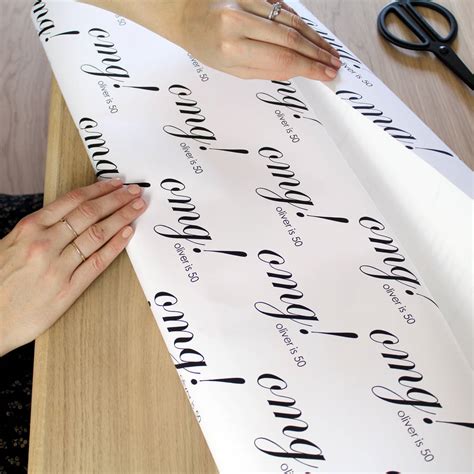 omg!
omg!
oliver is 50
omg!
oliver is 50
omg!
oliver is 50
omg!
omg!
oliver is 50
omg!
oliver is 50
omg!
oliver is 50
omg!
oliver is 50
omg!
oliver is 50
omg!
oliver is 50
omg!
oliver is 50
omg!
oliver is 50